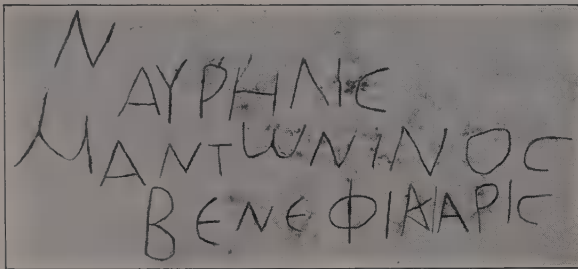 Ν
ΑΥΡΗΛΙϹ
ΜΑΝΤωΝΙΝΟϹ
ΒΕΝΕΦΙΚΙΑΡΙϹ